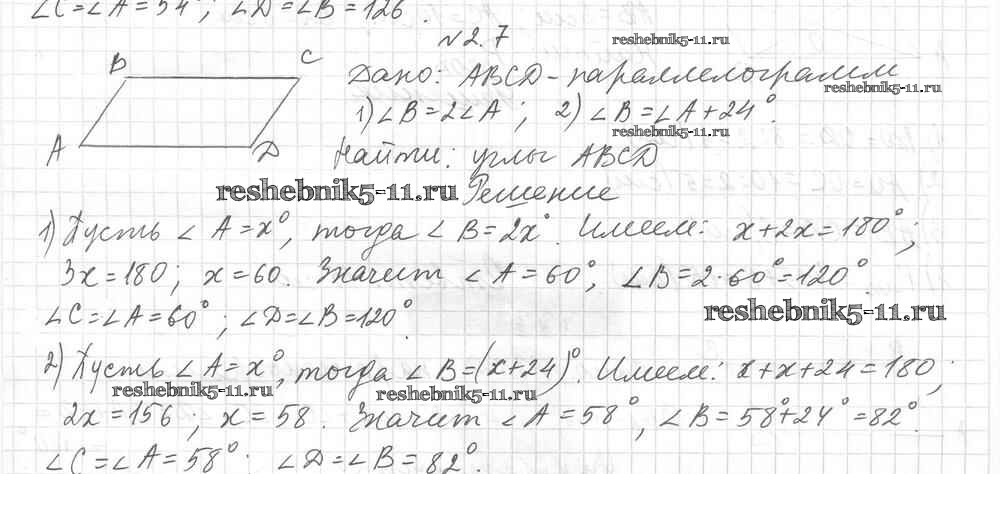 ∠C=∠A=54°; ∠D=∠B=126°.
№2.7
reshebnik5-11.ru
B C
Дано: ABCD-параллелограмм
reshebnik5-11.ru
1) ∠B=2∠A; 2) ∠B=∠A+24°.
reshebnik5-11.ru
A D
Найти: углы ABCD
reshebnik5-11.ru Решение
1) Пусть ∠A=x°, тогда ∠B=2x°. Имеем: x+2x=180°;
3x=180; x=60. Значит ∠A=60°, ∠B=2·60°=120°.
∠C=∠A=60°; ∠D=∠B=120°.
reshebnik5-11.ru
2) Пусть ∠A=x°, тогда ∠B=(x+24)°. Имеем: x+x+24=180;
reshebnik5-11.ru reshebnik5-11.ru
2x=156; x=58. Значит ∠A=58°, ∠B=58°+24°=82°.
∠C=∠A=58°. ∠D=∠B=82°.